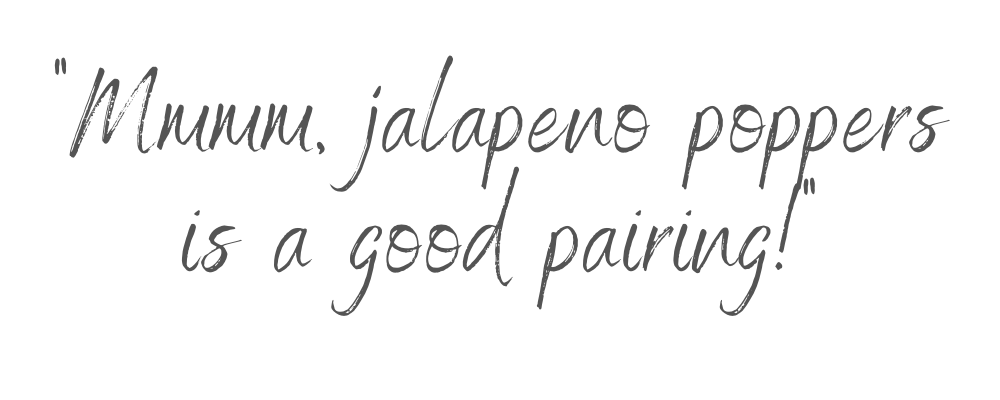 "Mmmm, jalapeno poppers
is a good pairing!"